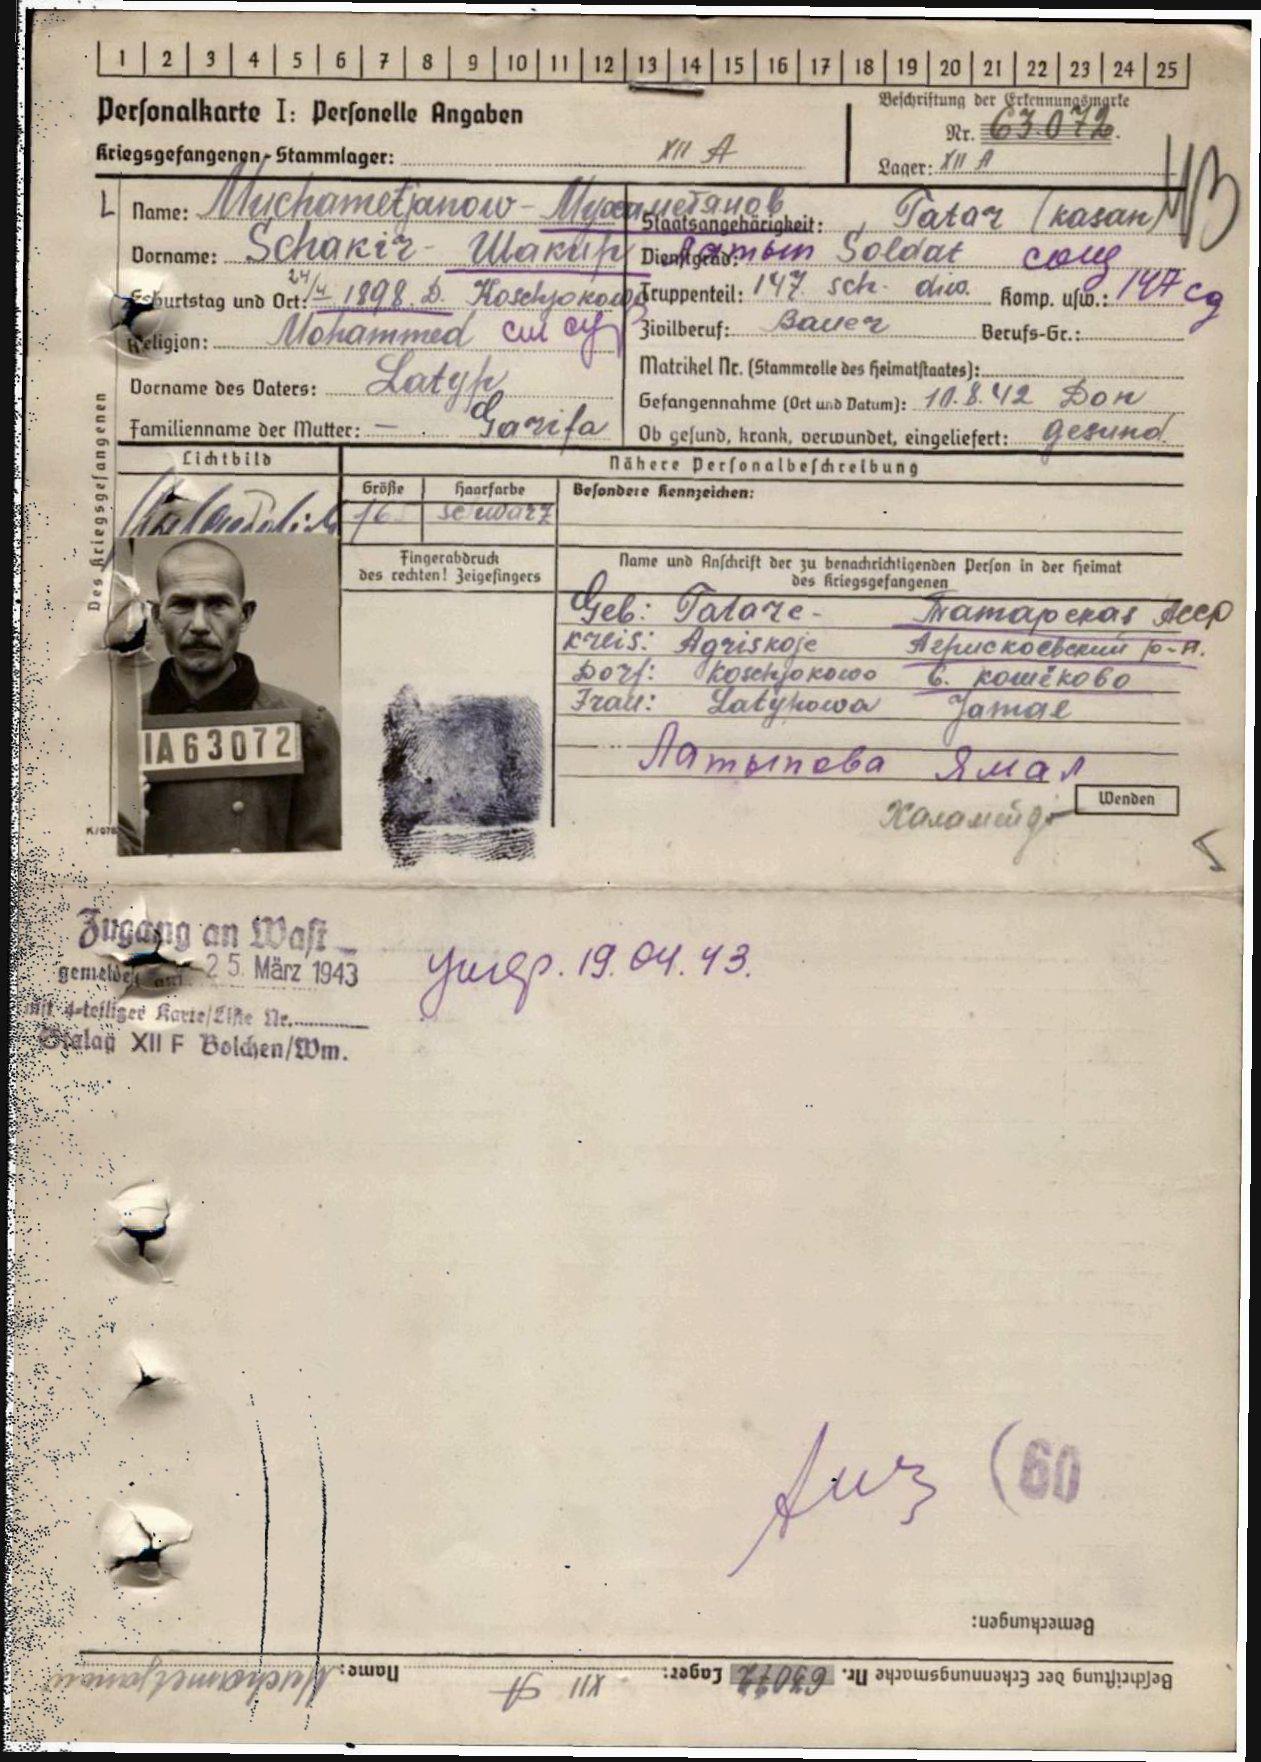 1 2 3 4 5 6 7 8 9 10 11 12 13 14 15 16 17 18 19 20 21 22 23 24 25
Personalkarte I: Personelle Angaben
Beschriftung der Erkennungsmarke
Nr. 63072.
Kriegsgefangenen-Stammlager: XII A
Lager: XII A
L Name: Muchametjanow - Мухаметянов
Staatsangehörigkeit: Tatar (Kasan)
Vorname: Schakir - Шакир Латып
Dienstgrad: Soldat солд
Geburtstag und Ort: 24/4 1898. D. Koschjokowo
Truppenteil: 147 sch. diw. Komp. usw.: 147 сд
Religion: Mohammed см
Zivilberuf: Bauer Berufs-Gr.:
Matrikel Nr. (Stammrolle des Heimatstaates):
Vorname des Vaters: Latyp
Gefangennahme (Ort und Datum): 10.8.42 Don
Familienname der Mutter: — . Garifa
Ob gesund, krank, verwundet, eingeliefert: gesund.
Des Kriegsgefangenen
Lichtbild
Nähere Personalbeschreibung
Größe
Haarfarbe
Besondere Kennzeichen:
schwarz
Fingerabdruck
des rechten! Zeigefingers
Name und Anschrift der zu benachrichtigenden Person in der Heimat
des Kriegsgefangenen
Geb: Tatare - Татарская АССР
Kreis: Agriskoje Агрискоевский р-н.
Dorf: Koschjokowo с. Кошёково
Frau: Latypowa Jamal
Латыпова Ямал
IA63072
Wenden
Zugang an Wast
gemeldet am: 25. März 1943
mit 4-teiliger Karte/Liste Nr.
Stalag XII F Bolchen/Wm.
19.04.43.
(60
Bemerkungen:
Beschriftung der Erkennungsmarke Nr. 63072 Lager: XII A Name: Muchametjanow